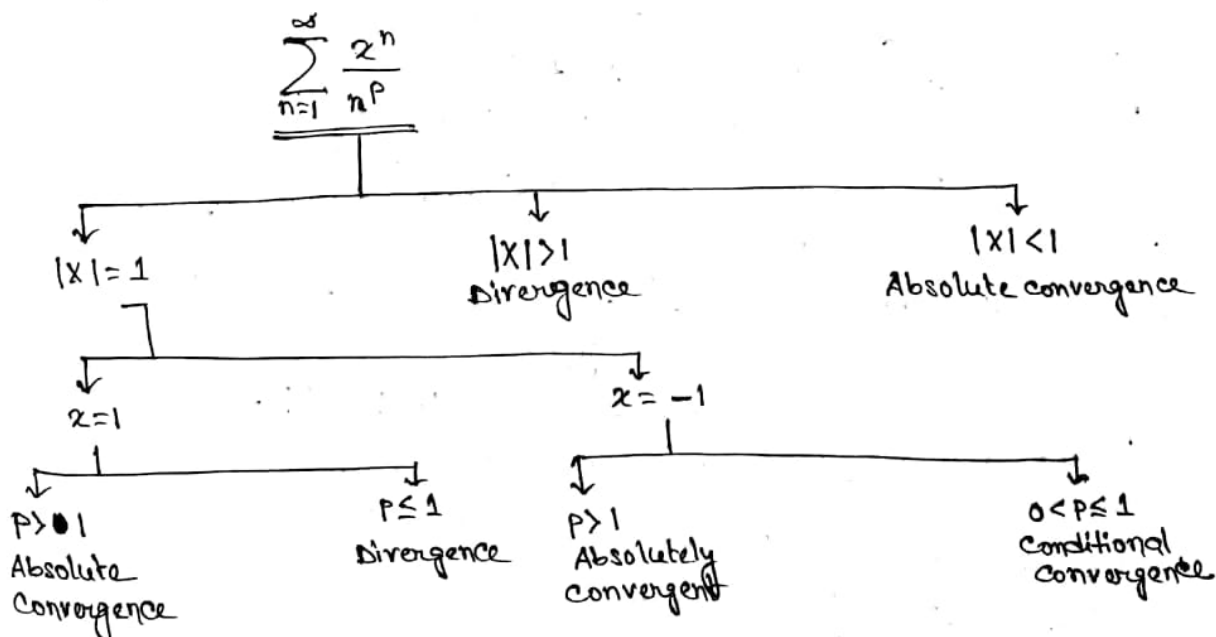 ∞
∑ xⁿ/nᴾ
n=1
|X|=1
|X|>1
Divergence
|X|<1
Absolute convergence
x=1
x= -1
P> 1
Absolute
Convergence
P≤ 1
Divergence
P>1
Absolutely
convergent
0<P≤1
Conditional
Convergence